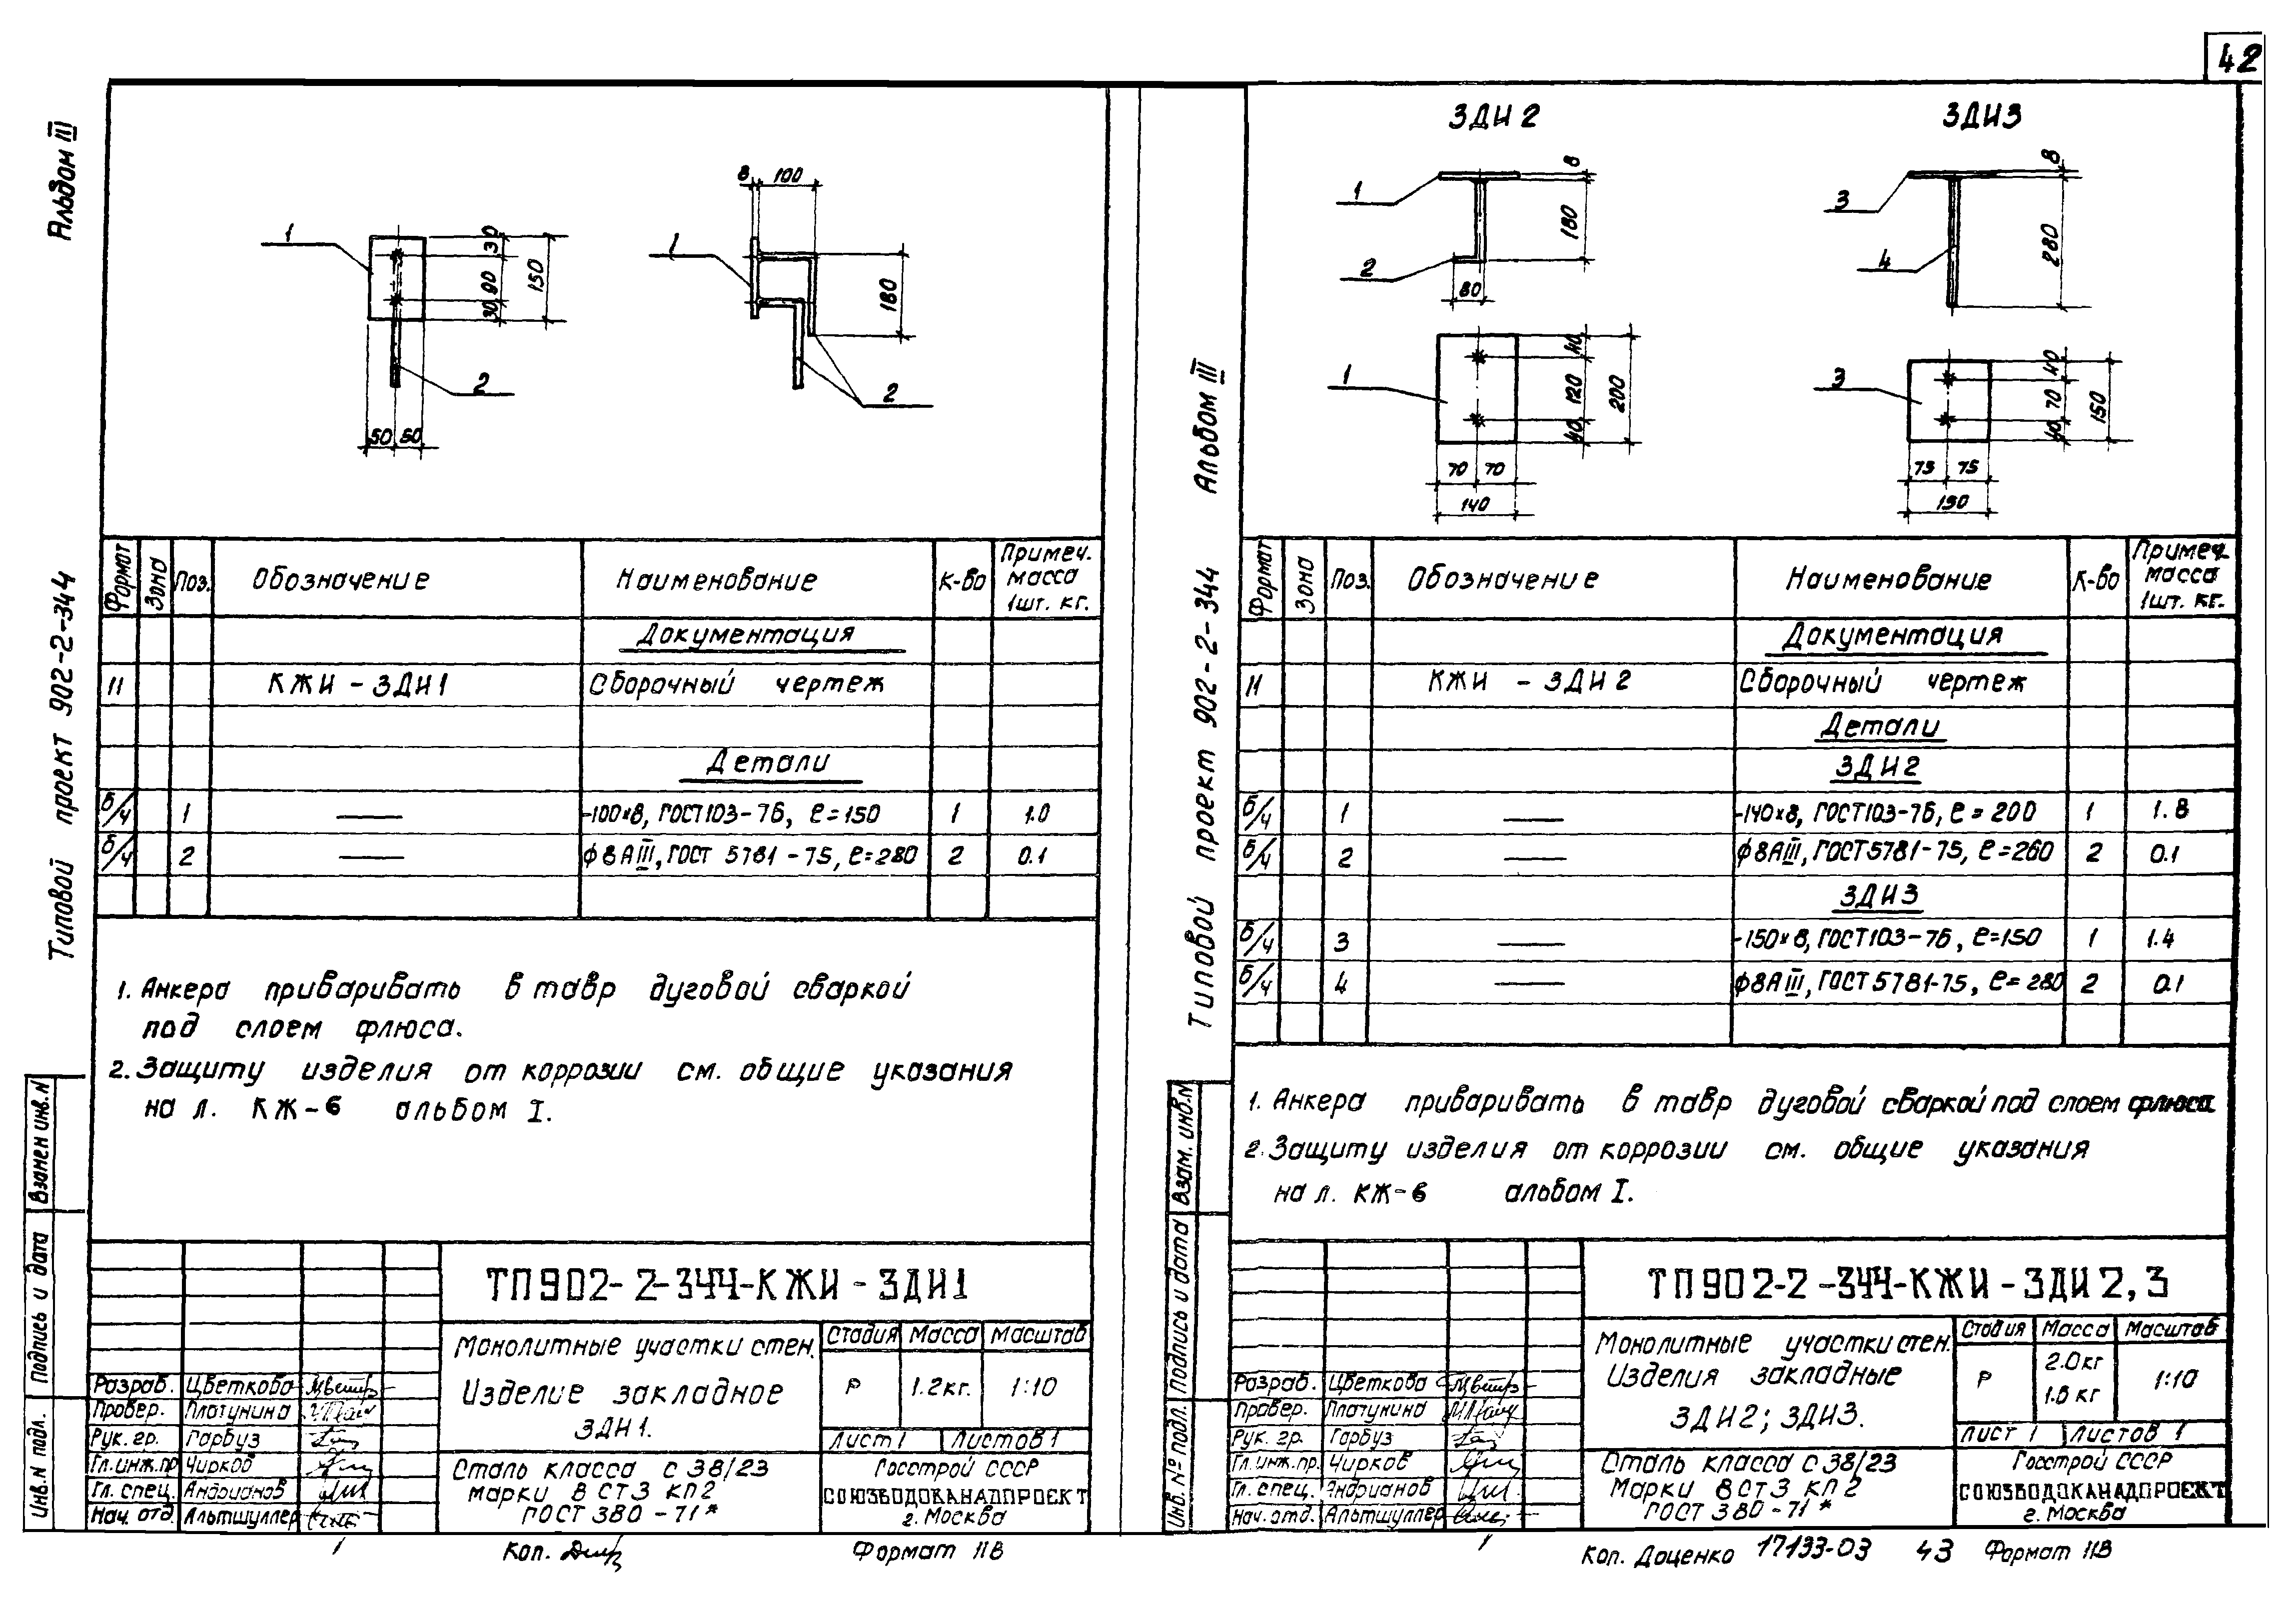 42
Альбом III
Типовой проект 902-2-344
1
30
90
30
150
2
50 50
8 100
1
180
2
Формат Зона Поз. Обозначение Наименование К-во Примеч. масса 1шт. кг.
Документация
11 КЖИ - ЗДИ1 Сборочный чертеж
Детали
б/ч 1 — -100×8, ГОСТ 103-76, ℓ=150 1 1.0
б/ч 2 — ф8АIII, ГОСТ 5781-75, ℓ=280 2 0.1
1. Анкера приваривать в тавр дуговой сваркой
под слоем флюса.
2. Защиту изделия от коррозии см. общие указания
на л. КЖ-6 альбом I.
Взанен инв. N
Подпись и дата
Инв. N подл.
ТП902-2-344-КЖИ-ЗДИ1
Монолитные участки стен.
Изделие закладное
ЗДИ1.
Стадия Масса Масштаб
Р 1.2кг. 1:10
Лист 1 Листов 1
Разраб. Цветкова
Провер. Платунина
Рук. гр. Гарбуз
Гл.инж.пр Чирков
Гл. спец. Андрианов
Нач. отд. Альтшуллер
Сталь класса С 38/23
марки В СТ3 КП2
ГОСТ 380-71*
Госстрой СССР
СОЮЗВОДОКАНАЛПРОЕКТ
г. Москва
1
Коп.
Формат 11В
Альбом III
Типовой проект 902-2-344
ЗДИ 2
1
8
180
2
80
1
40
120
40
200
70 70
140
ЗДИ3
3
8
280
4
3
40
70
40
150
75 75
150
Формат Зона Поз. Обозначение Наименование К-во Примеч. масса 1шт. кг.
Документация
11 КЖИ - ЗДИ 2 Сборочный чертеж
Детали
ЗДИ2
б/ч 1 — -140×8, ГОСТ 103-76, ℓ=200 1 1.8
б/ч 2 — ф8АIII, ГОСТ 5781-75, ℓ=260 2 0.1
ЗДИ3
б/ч 3 — -150×8, ГОСТ 103-76, ℓ=150 1 1.4
б/ч 4 — ф8АIII, ГОСТ 5781-75, ℓ=280 2 0.1
1. Анкера приваривать в тавр дуговой сваркой под слоем флюса
2. Защиту изделия от коррозии см. общие указания
на л. КЖ-6 альбом I.
Взам. инв. N
Подпись и дата
Инв. № подл.
ТП902-2-344-КЖИ-ЗДИ2,3
Монолитные участки стен.
Изделия закладные
ЗДИ2; ЗДИ3.
Стадия Масса Масштаб
Р 2.0кг 1.6 кг 1:10
Лист 1 Листов 1
Разраб. Цветкова
Провер. Платунина
Рук. гр. Гарбуз
Гл.инж.пр. Чирков
Гл. спец. Андрианов
Нач. отд. Альтшуллер
Сталь класса С 38/23
Марки В СТ3 КП2
ГОСТ 380-71*
Госстрой СССР
СОЮЗВОДОКАНАЛПРОЕКТ
г. Москва
1
Коп. Доценко 17133-03 43 Формат 11В